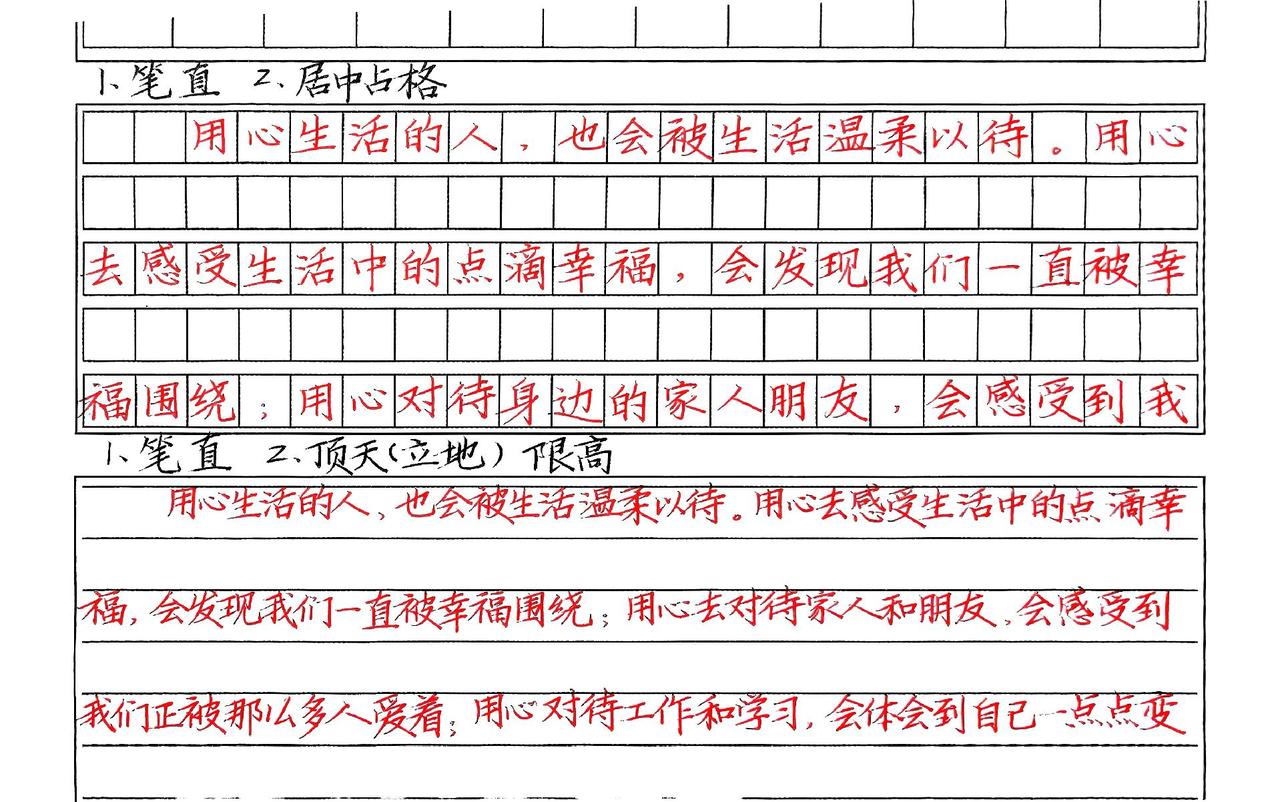 1、笔直 2、居中占格
用心生活的人，也会被生活温柔以待。用心
去感受生活中的点滴幸福，会发现我们一直被幸
福围绕；用心对待身边的家人朋友，会感受到我
1、笔直 2、顶天(立地）限高
用心生活的人、也会被生活温柔以待。用心去感受生活中的点滴幸
福，会发现我们一直被幸福围绕；用心去对待家人和朋友、会感受到
我们正被那么多人爱着；用心对待工作和学习，会体会到自己一点点变